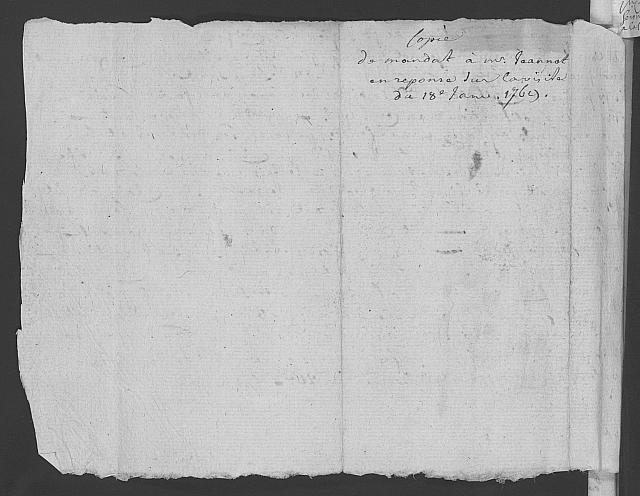 Copie
de mandat à mr. Jeannot
en reponse sur la visite
du 18e Janv. 1769.